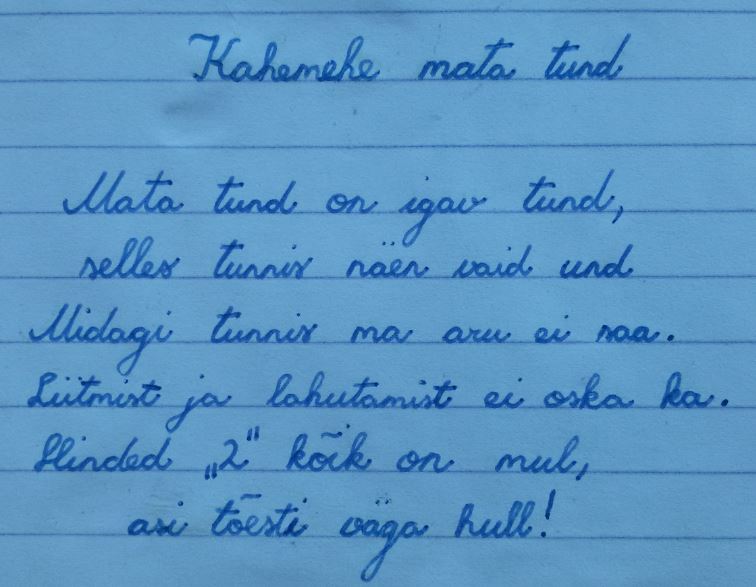 Kahemehe mata tund
Mata tund on igav tund,
selles tunnis näen vaid und
Midagi tunnis ma aru ei saa.
Liitmist ja lahutamist ei oska ka.
Hinded „2" kõik on mul,
asi tõesti väga hull!